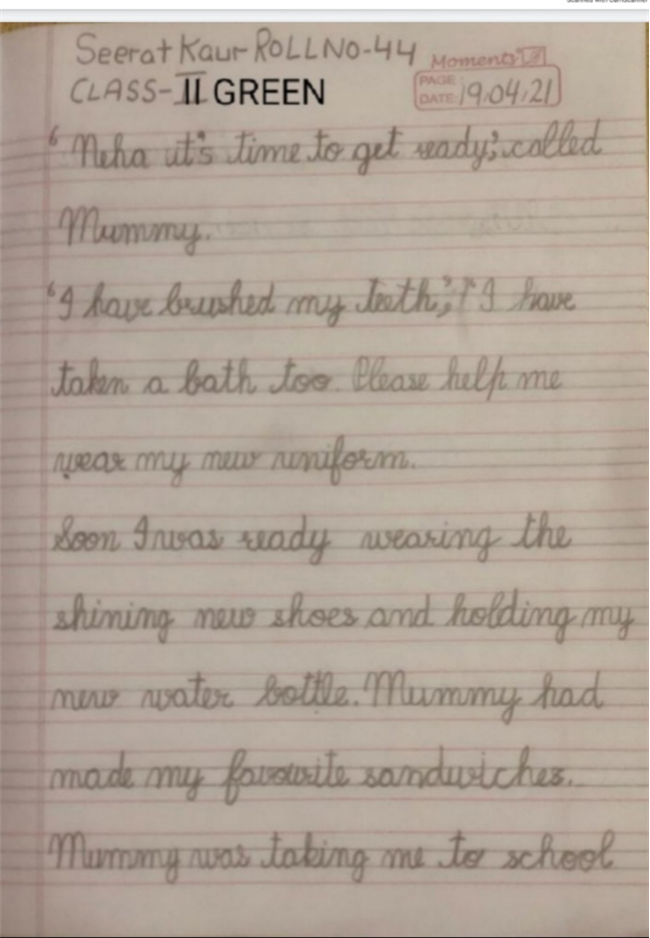 Scanned with CamScanner
Seerat Kaur ROLL NO-44
Moments
CLASS-II GREEN
PAGE:
DATE: 19.04.21
'Neha it's time to get ready', called
Mummy.
'I have brushed my teeth', 'I have
taken a bath too. Please help me
wear my new uniform.
Soon I was ready wearing the
shining new shoes and holding my
new water bottle. Mummy had
made my favourite sandwiches.
Mummy was taking me to school